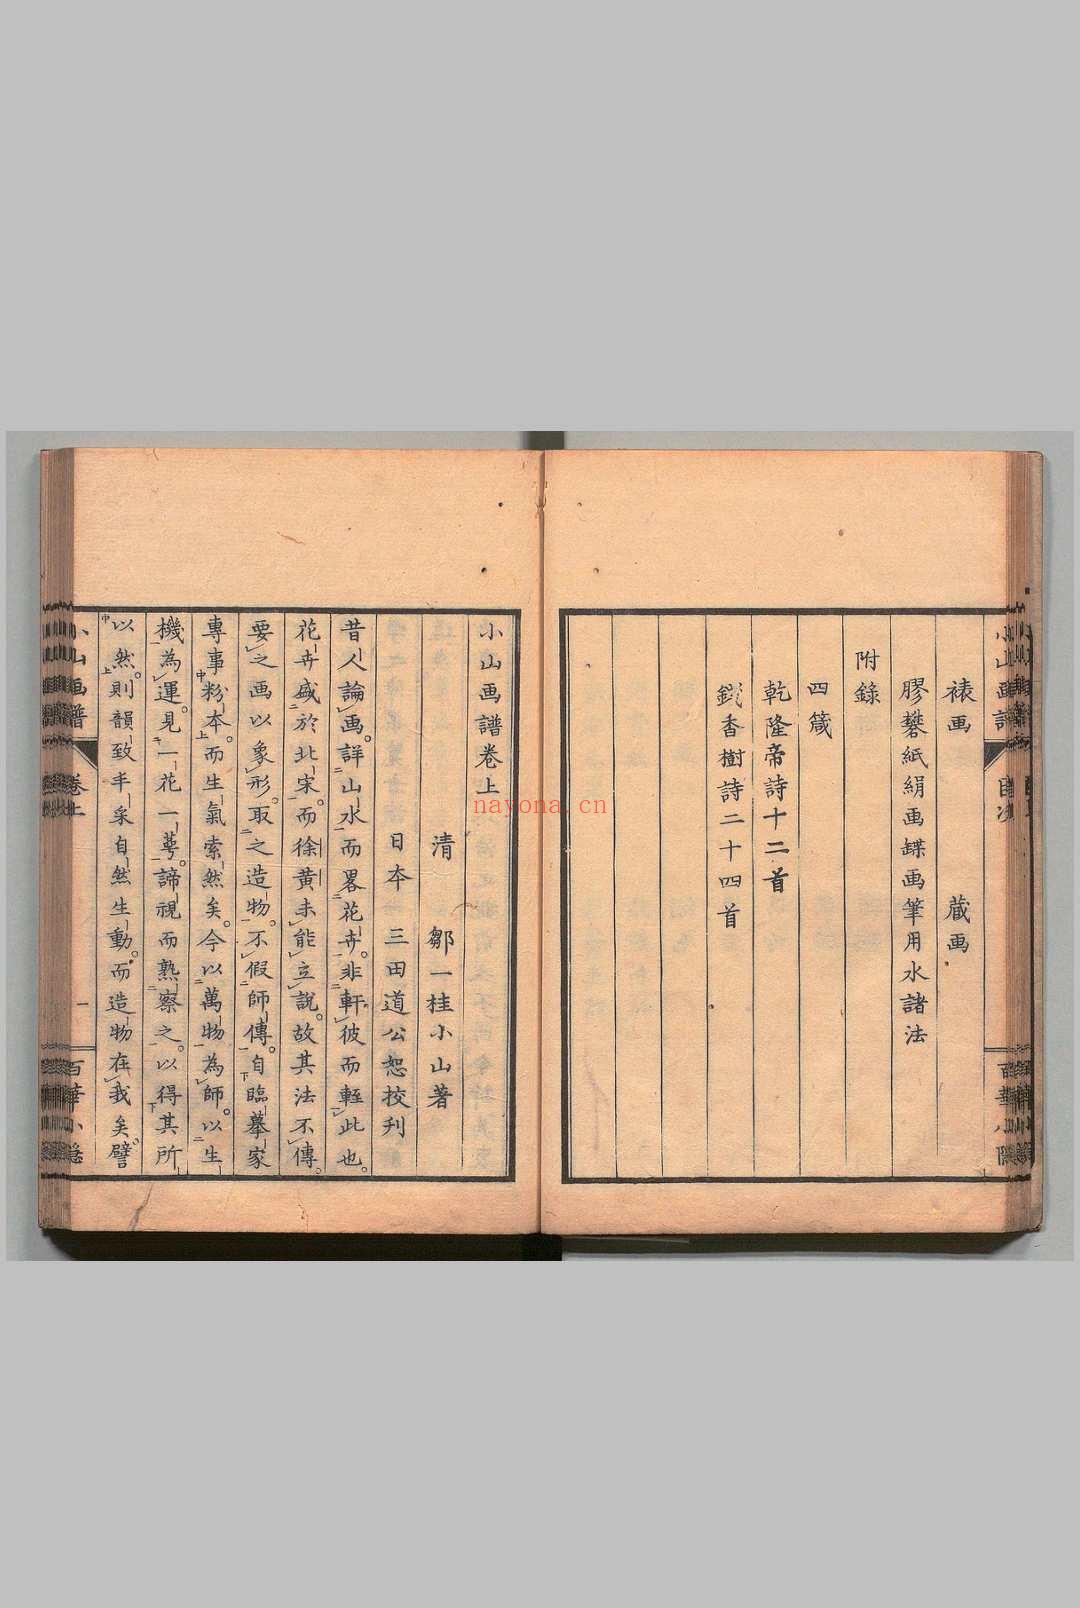 裱画　藏画
膠礬紙絹画蝶画筆用水諸法
附錄
四箴
乾隆帝詩十二首
錢香樹詩二十四首
小山画譜卷上
清　鄒一桂小山著
日本　三田道公恕挍刊
昔人論画。詳山水而畧花卉。非軒彼而輊此也。
花卉盛於北宋。而徐黃未能立說。故其法不傳。
要之画以象形。取之造物。不假師傳。自臨摹家
專事粉本。而生氣索然矣。今以萬物為師。以生
機為運。見一花一萼。諦視而熟察之。以得其所
以然。則韻致丰采自然生動。而造物在我矣。譬
小山画譜　卷上　一　百華小隱
nayona.cn